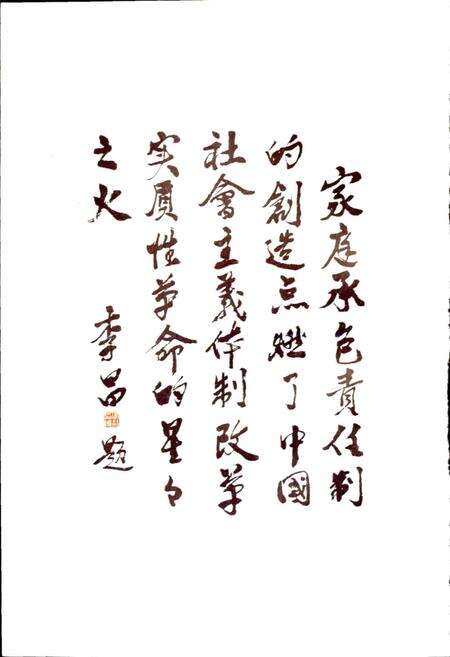 家庭承包責任制
的創造点燃了中國
社會主義体制改革
实质性革命的星々
之火
李昌題